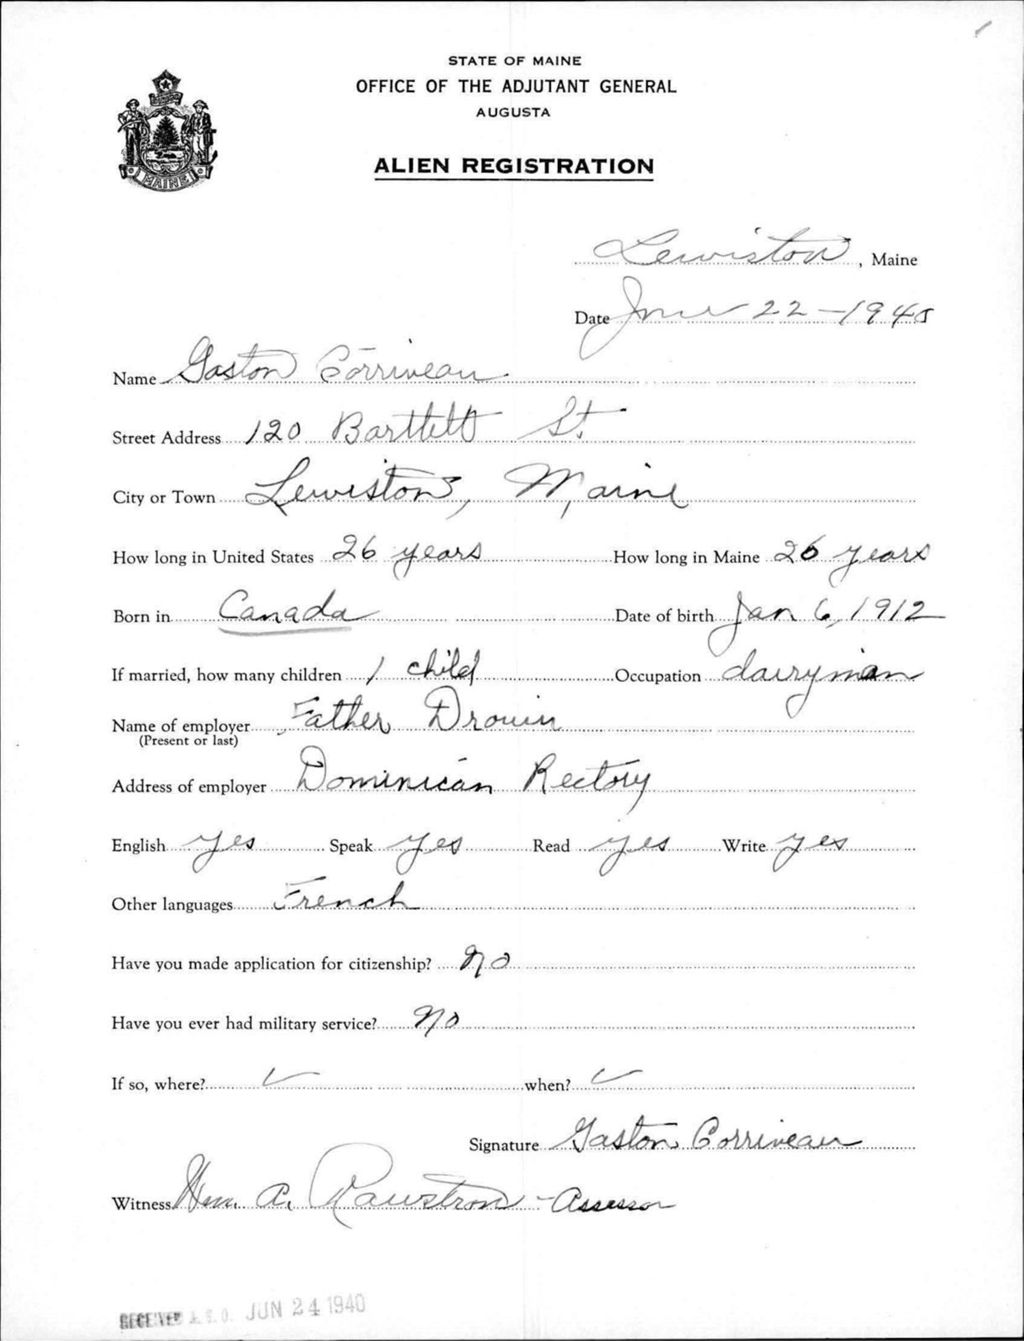 STATE OF MAINE
OFFICE OF THE ADJUTANT GENERAL
AUGUSTA
ALIEN REGISTRATION
MAINE
Lewiston, Maine
Date June 22-1940
Name Gaston Corriveau
Street Address 120 Bartlett St.
City or Town Lewiston, Maine
How long in United States 26 years How long in Maine 26 years
Born in Canada Date of birth Jan 6, 1912
If married, how many children 1 child Occupation dairyman
Name of employer Father Drouin
(Present or last)
Address of employer Dominican Rectory
English yes Speak yes Read yes Write yes
Other languages French
Have you made application for citizenship? No
Have you ever had military service? No
If so, where? ✓ when? ✓
Signature Gaston Corriveau
Witness Wm. A. Rawstron - Assessor
RECEIVED A.G.O. JUN 24 1940